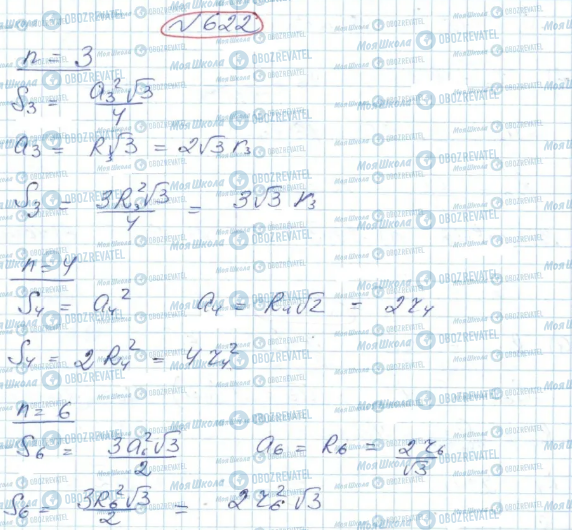 √622
n = 3
S₃ = a₃²√3/4
a₃ = R₃√3 = 2√3 r₃
S₃ = 3R₃²√3/4 = 3√3 r₃
n = 4
S₄ = a₄² a₄ = R₄√2 = 2r₄
S₄ = 2R₄² = 4r₄²
n = 6
S₆ = 3a₆²√3/2 a₆ = R₆ = 2r₆/√3
S₆ = 3R₆²√3/2 = 2r₆²√3
Моя Школа OBOZREVATEL